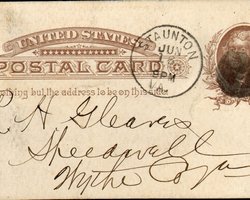 UNITED STATES
POSTAL CARD
STAUNTON
JUN
9PM
VA.
thing but the address to be on this side.
H Gleaves
Speedwell
Wythe Co Va